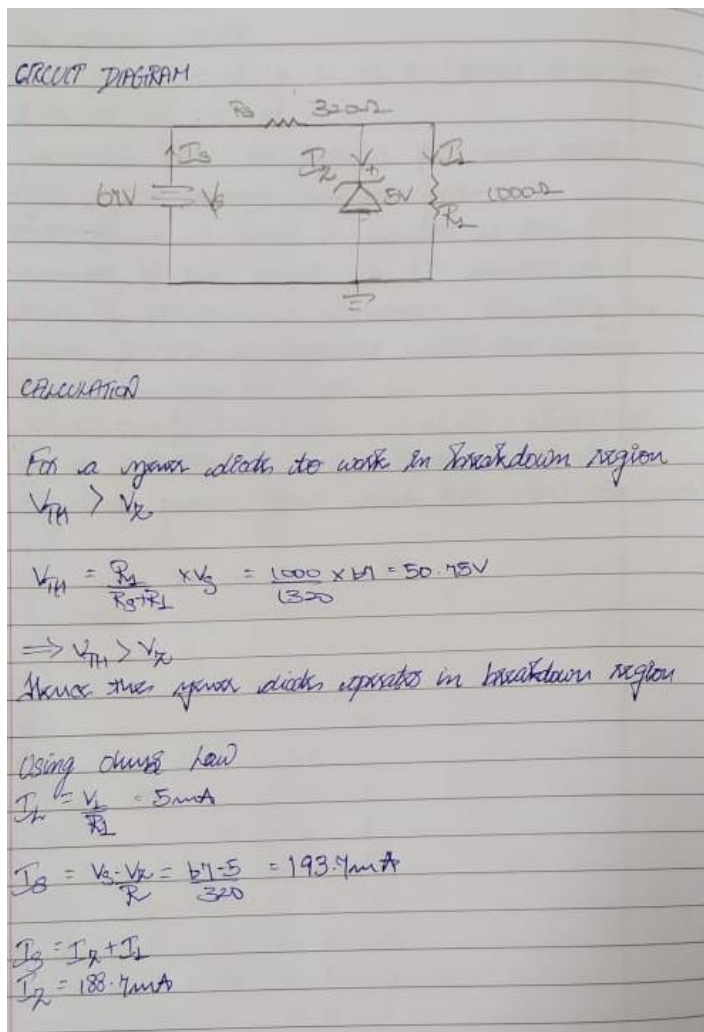 CIRCUIT DIAGRAM
Rs 320Ω
Is Iz V+ I1
67V Vs 5V R1 1000Ω
CALCULATION
For a zener diode to work in breakdown region
VTH > Vz
VTH = R1/(Rs+R1) × Vs = 1000/1320 × 67 = 50.75V
⇒ VTH > Vz
Hence the zener diode operates in breakdown region
Using ohms Law
IL = VL/RL = 5mA
Is = (Vs-Vz)/R = (67-5)/320 = 193.7mA
Is = Iz + I1
Iz = 188.7mA